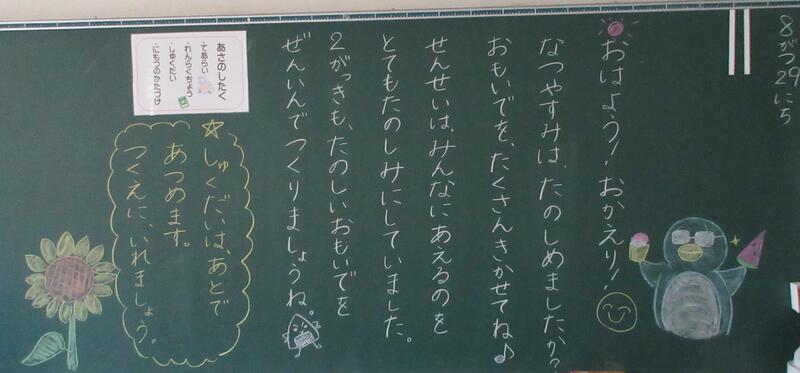 8がつ29にち
おはよう！おかえり！
なつやすみは、たのしめましたか？
おもいでを、たくさんきかせてね♪
せんせいは、みんなにあえるのを
とてもたのしみにしていました。
2がっきも、たのしいおもいでを
ぜんいんでつくりましょうね。
あさのしたく
・てあらい
・れんらくちょう
・しゅくだい
・にもつのかたづけ
☆しゅくだいは、あとで
あつめます。
つくえに、いれましょう。